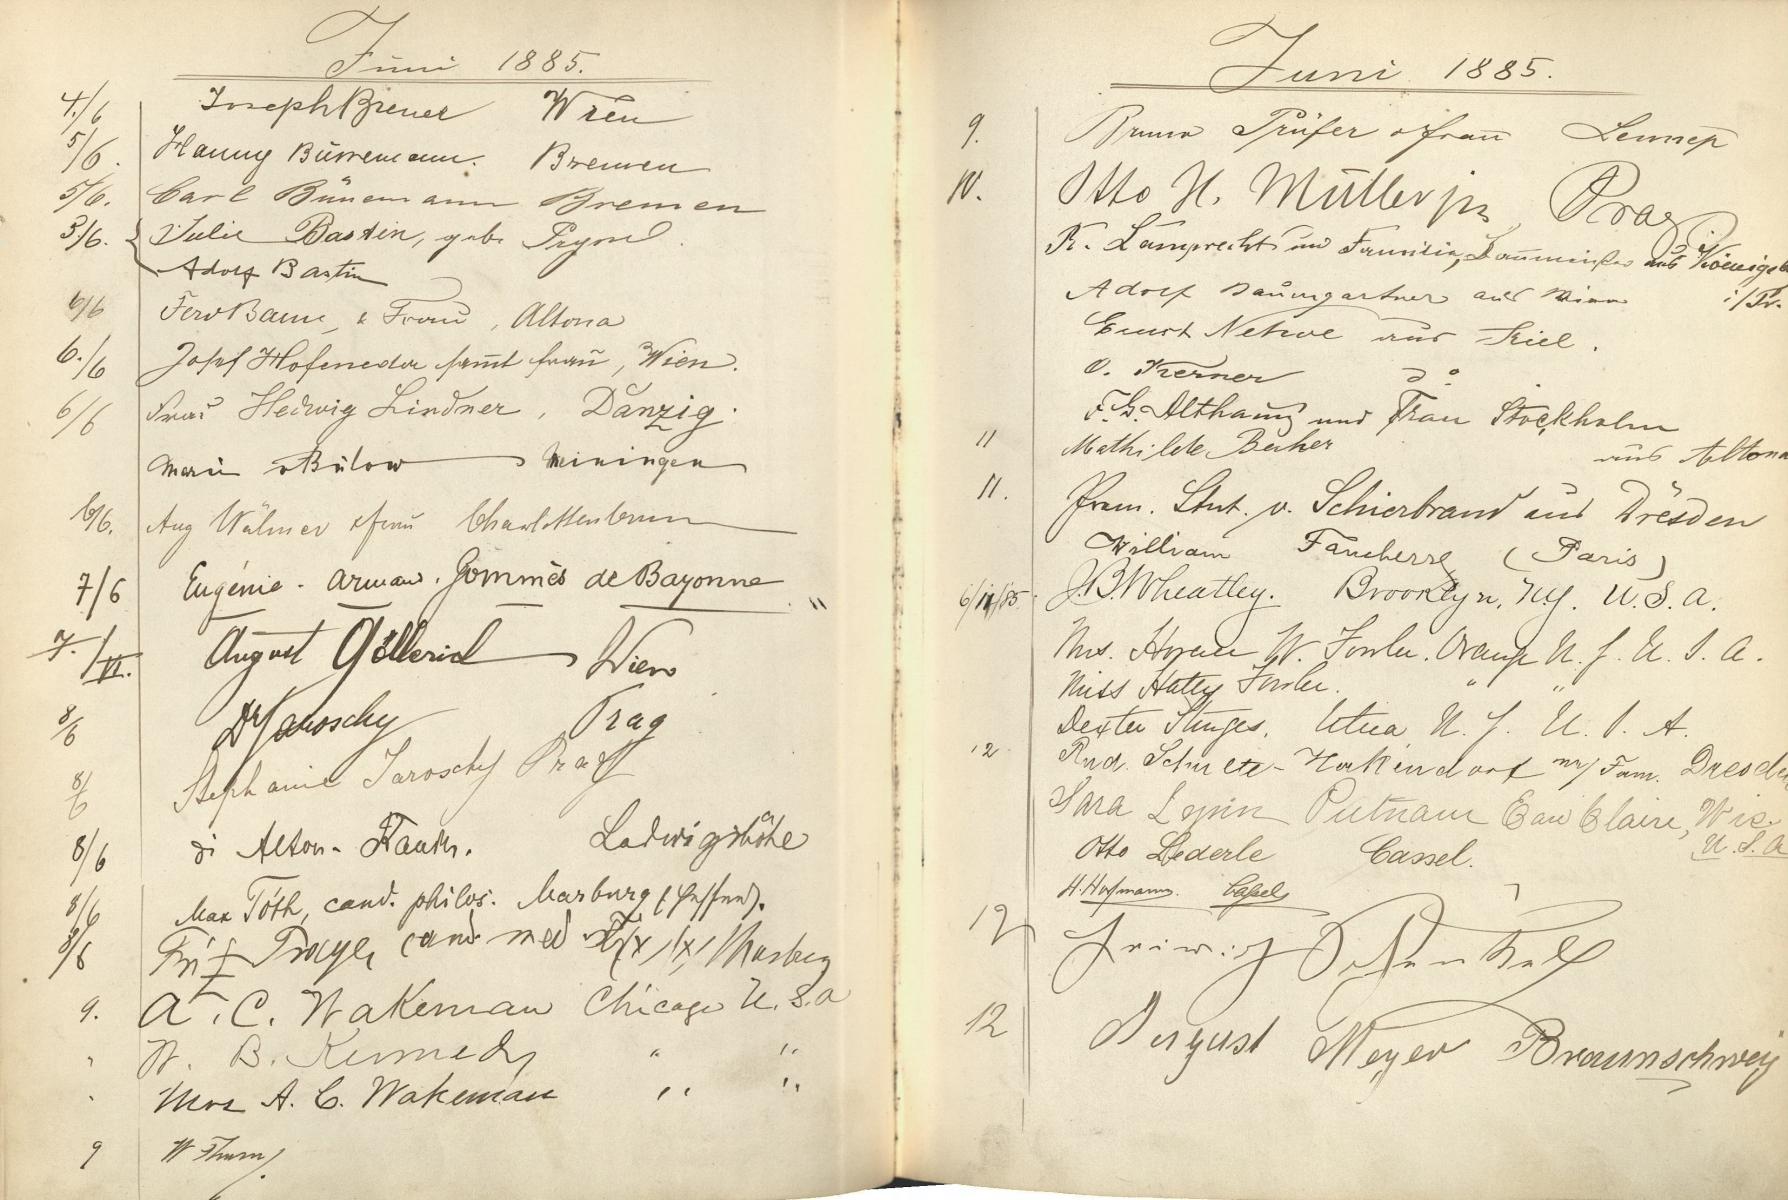 Juni 1885.
4./6 Joseph Breuer Wien
5/6. Hanny Bünemann. Bremen
5/6. Carl Bünemann Bremen
5./6. Julie Bastin, geb.
Adolf Bastin
6/6 & Frau, Altona
6./6 Josef Hofeneder samt Frau, Wien.
6/6 Frau Hedwig Lindner, Danzig.
Marie v Bülow Meiningen
6/6. Aug Wülmer & Frau Charlottenbrunn
7/6 Eugénie - Armand. Gommès de Bayonne
7./VI. August Göllerich Wien
8/6 Dr Jaroschy Prag
8/6 Stephanie Jaroschy Prag
8/6 Ludwigshöhe
8/6 Max Tóth, cand. philos. Marburg (Hessen).
8/6 Fritz cand med Marburg
9. A. C. Wakeman Chicago U. S. A
" W. B. Kennedy " "
" Mrs A. C. Wakeman " "
9 W Thurm
Juni 1885.
9. Bruno Prüfer & Frau Lennep
10. Otto H. Müller jr, Prag
R. Lamprecht und Familie, Baumeister aus Königsb
i/Pr.
Adolf Baumgartner aus Wien
Ernst Netwe aus Kiel.
O. Kerner do
F. G. Althainz und Frau Stockholm
11 Mathilde Becker aus Altona
11. Prem. Lieut. v. Schierbrand aus Dresden
William (Paris)
6/11/85 J. B. Wheatley. Brooklyn, N.Y. U. S. A.
Mrs. W. Fowler. Orange N. J. U. S. A.
Miss Hatty Fowler. " "
Dexter Sturges, Utica N. Y. U. S. A.
12 Rud. Schulte-Heckendorf m/ Fam. Dresden
Sara Lynn Putnam Eau Claire, Wis.
U. S. A
Otto Lederle Cassel.
H. Hofmann. Cassel
12 Schenkel
12 August Meyer Braunschweig